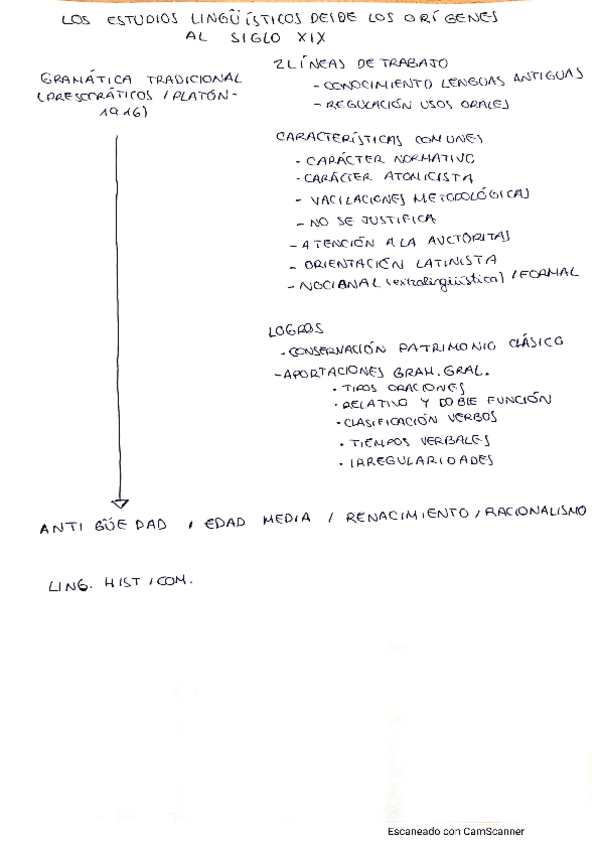 LOS ESTUDIOS LINGÜÍSTICOS DESDE LOS ORÍGENES
AL SIGLO XIX
GRAMÁTICA TRADICIONAL
(PRESOCRÁTICOS / PLATÓN -
1916)
2 LÍNEAS DE TRABAJO
- CONOCIMIENTO LENGUAS ANTIGUAS
- REGULACIÓN USOS ORALES
CARACTERÍSTICAS COMUNES
- CARÁCTER NORMATIVO
- CARÁCTER ATOMICISTA
- VACILACIONES METODOLÓGICAS
- NO SE JUSTIFICA
- ATENCIÓN A LA AUCTÓRITAS
- ORIENTACIÓN LATINISTA
- NOCIANAL (extralingüística) / FORMAL
LOGROS
- CONSERVACIÓN PATRIMONIO CLÁSICO
- APORTACIONES GRAM. GRAL.
· TIPOS ORACIONES
· RELATIVO Y DOBLE FUNCIÓN
· CLASIFICACIÓN VERBOS
· TIEMPOS VERBALES
· IRREGULARIDADES
ANTIGÜEDAD / EDAD MEDIA / RENACIMIENTO / RACIONALISMO
LING. HIST / COM.
Escaneado con CamScanner